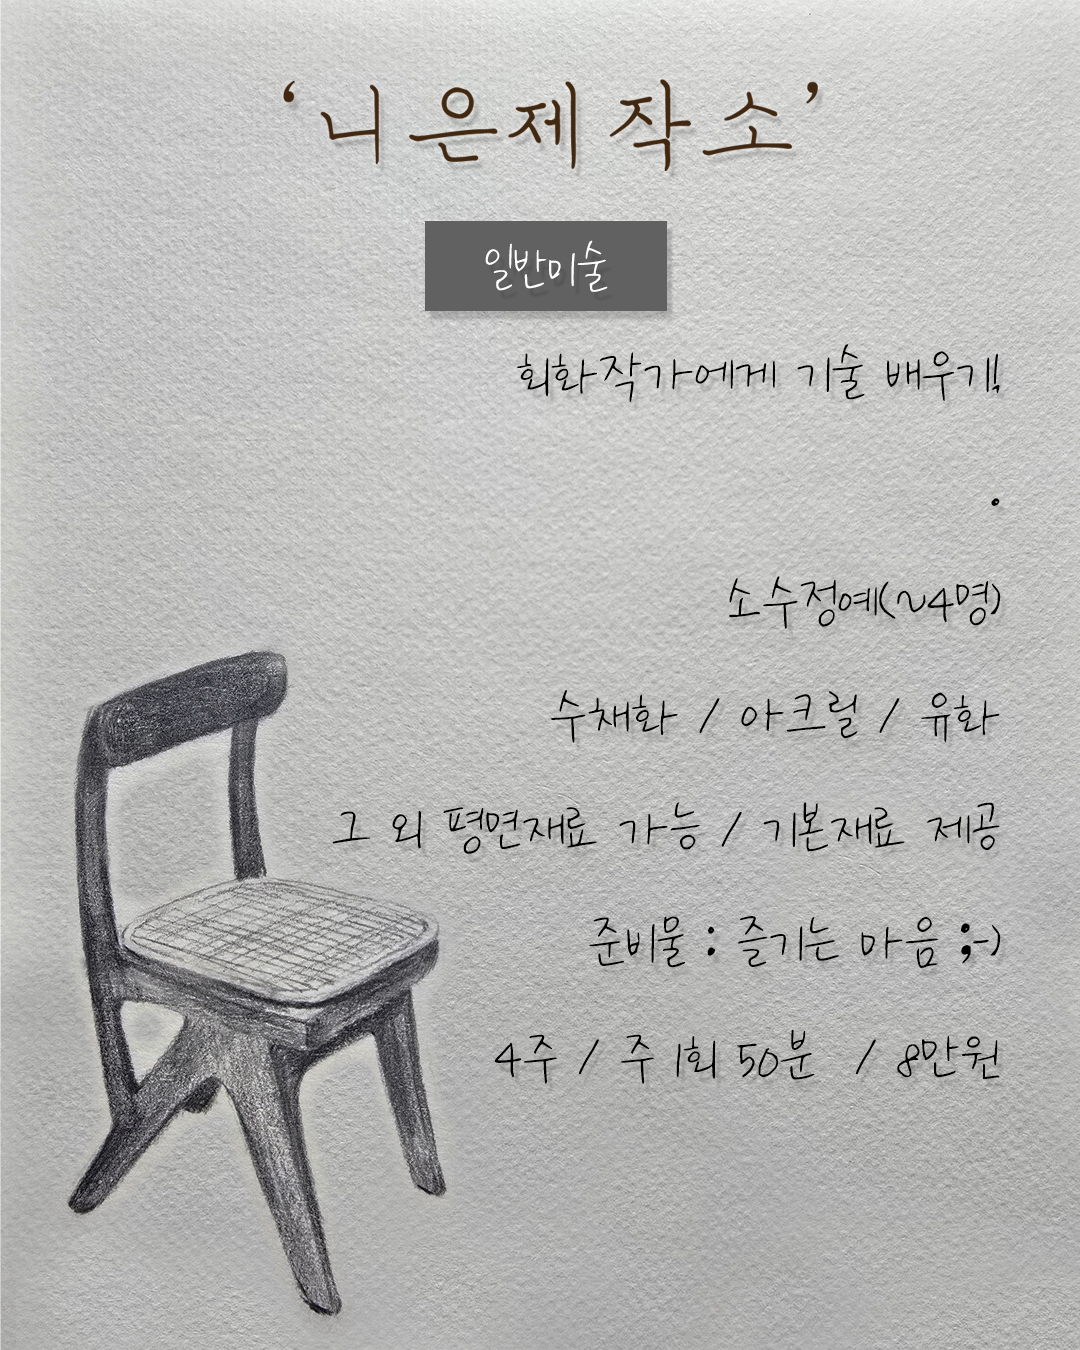 ‘니은제작소’
일반미술
회화작가에게 기술 배우기!
.
소수정예(~4명)
수채화 / 아크릴 / 유화
그 외 평면재료 가능 / 기본재료 제공
준비물 : 즐기는 마음 ;-)
4주 / 주 1회 50분 / 8만원